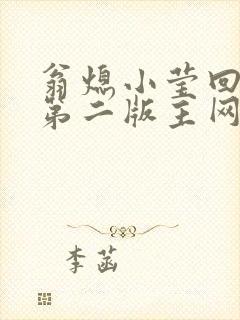 翁熄小莹回
第二版主网
李菡